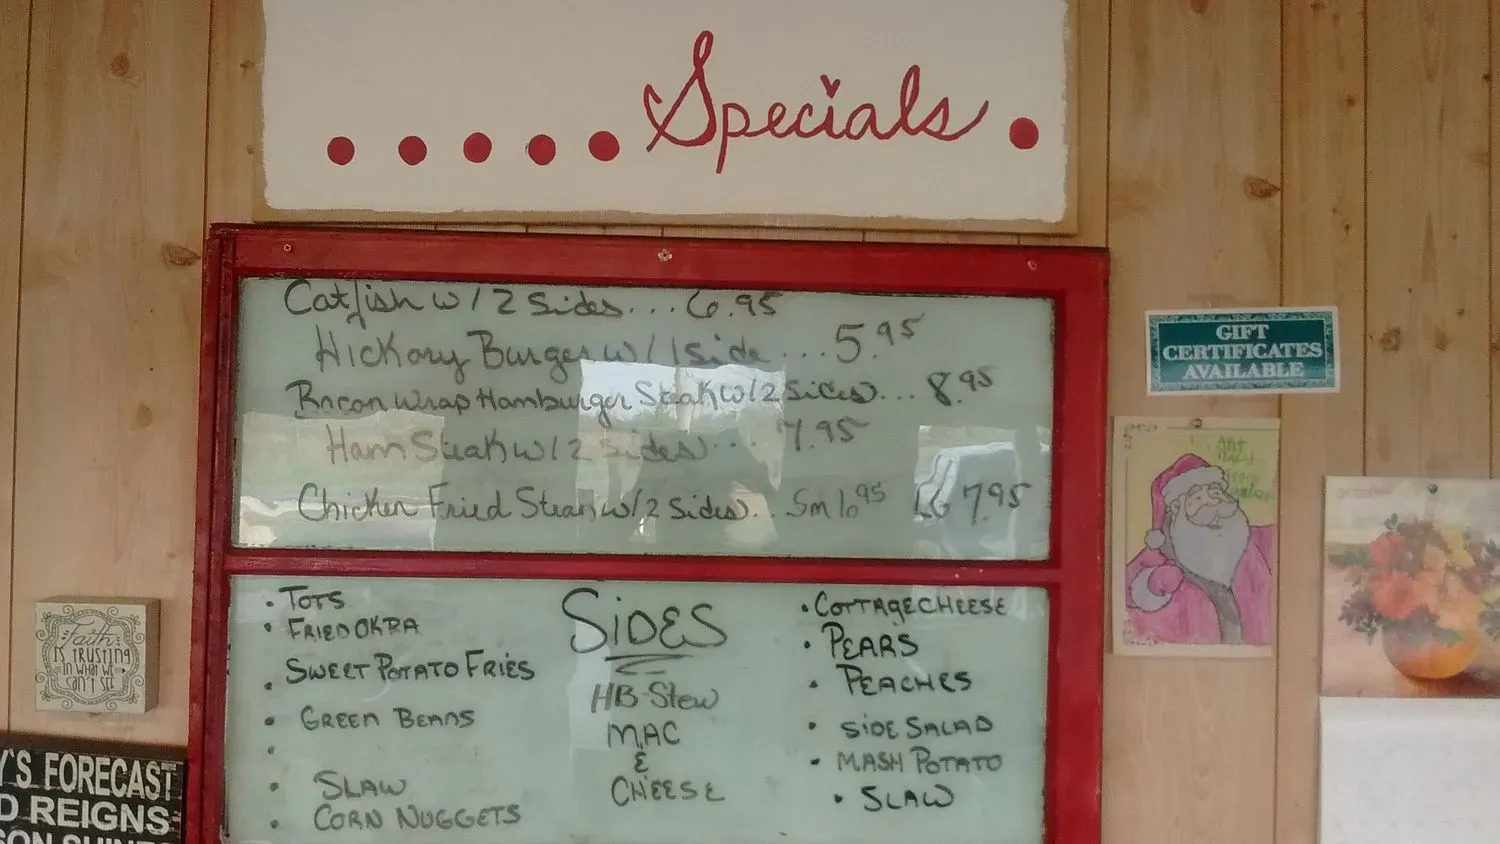 Specials
Catfish w/ 2 Sides... 6.95
Hickory Burger w/ 1 Side ... 5.95
Bacon Wrap Hamburger Steak w/ 2 Sides... 8.95
Ham Steak w/ 2 Sides... 7.95
Chicken Fried Steak w/ 2 Sides.. Sm 6.95 LG 7.95
SIDES
• TOTS
• FRIED OKRA
• SWEET POTATO FRIES
• GREEN BEANS
•
• SLAW
• CORN NUGGETS
HB-Stew
MAC
&
CHEESE
• COTTAGE CHEESE
• PEARS
• PEACHES
• SIDE SALAD
• MASH POTATO
• SLAW
GIFT
CERTIFICATES
AVAILABLE
October
Faith
IS TRUSTING
IN WHAT WE
can't SEE
Y'S FORECAST
D REIGNS
SON SHINES